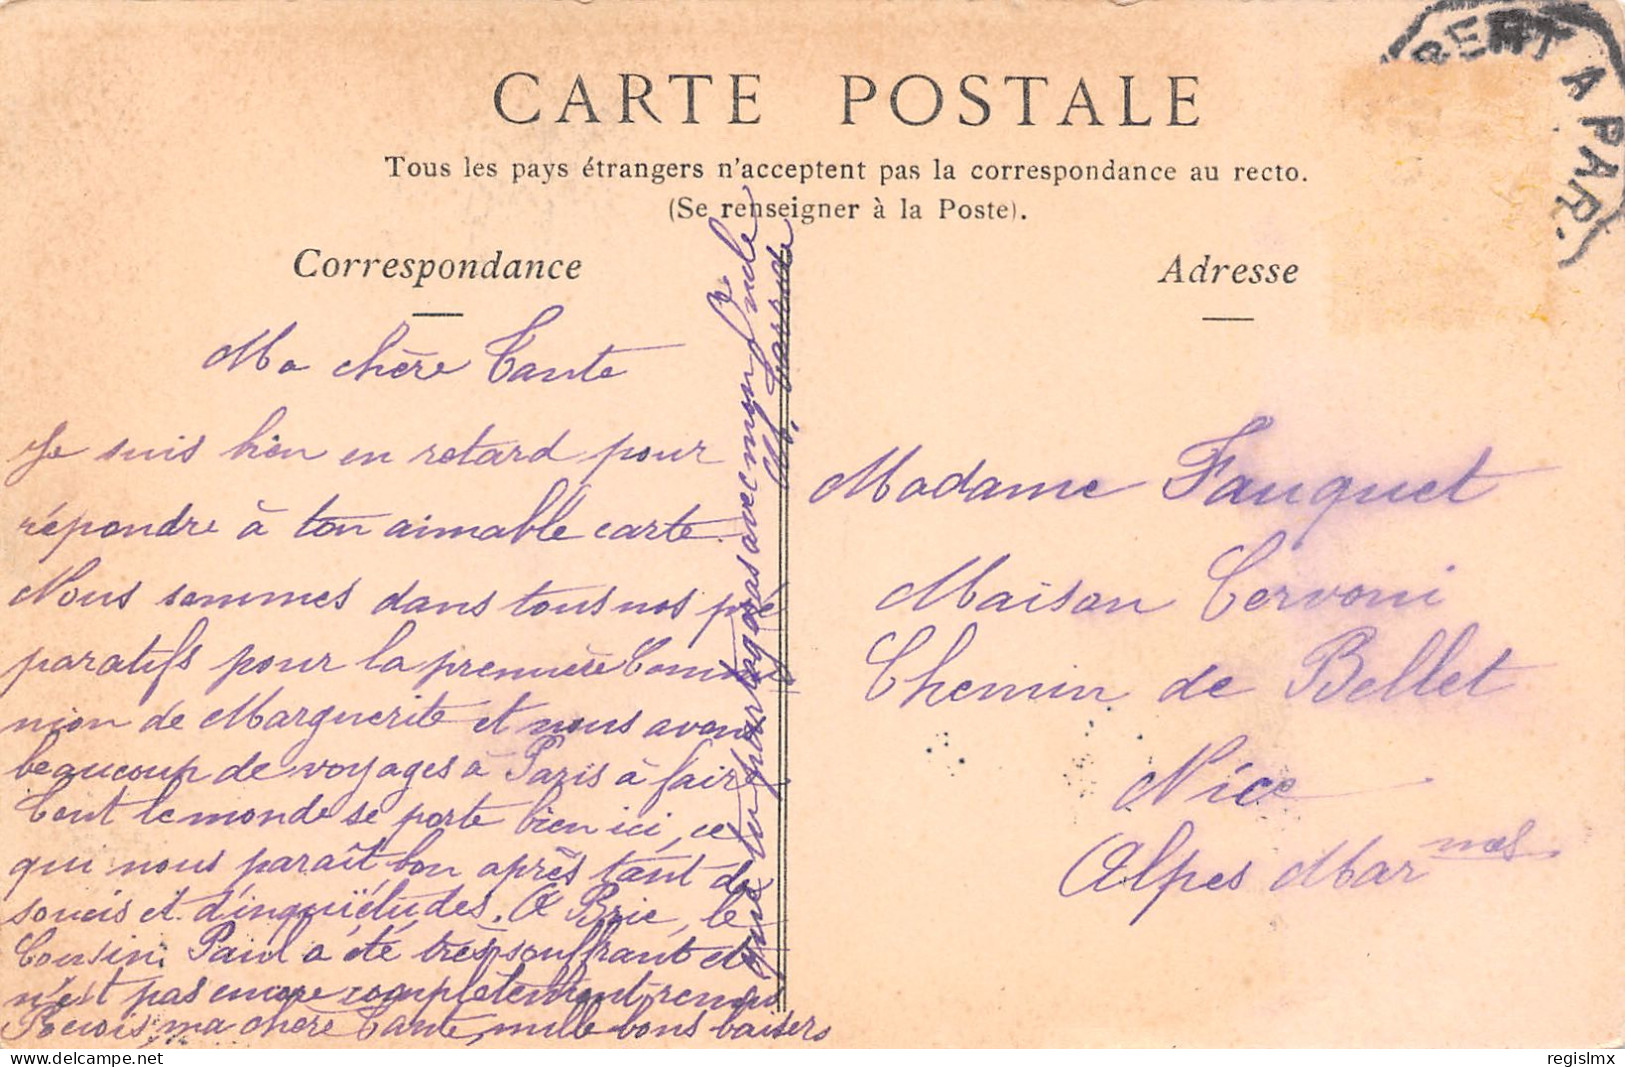 CARTE POSTALE
Tous les pays étrangers n'acceptent pas la correspondance au recto.
(Se renseigner à la Poste).
Correspondance
Ma chère Tante
Je suis bien en retard pour
répondre à ton aimable carte.
Nous sommes dans tous nos pré
paratifs pour la première Commu
nion de Marguerite et nous avons
beaucoup de voyages à Paris à fair
Tout le monde se porte bien ici, ce
qui nous paraît bon après tant de
soucis et d'inquiétudes. A Brie, le
Cousin Paul a été très souffrant et
n'est pas encore complètement remis
Reçois, ma chère Tante, mille bons baisers
que tu partageras avec mon Oncle
Adresse
Madame Fauquet
Maison Cervoni
Chemin de Bellet
Nice
Alpes Mar nes
A PAR.
regislmx